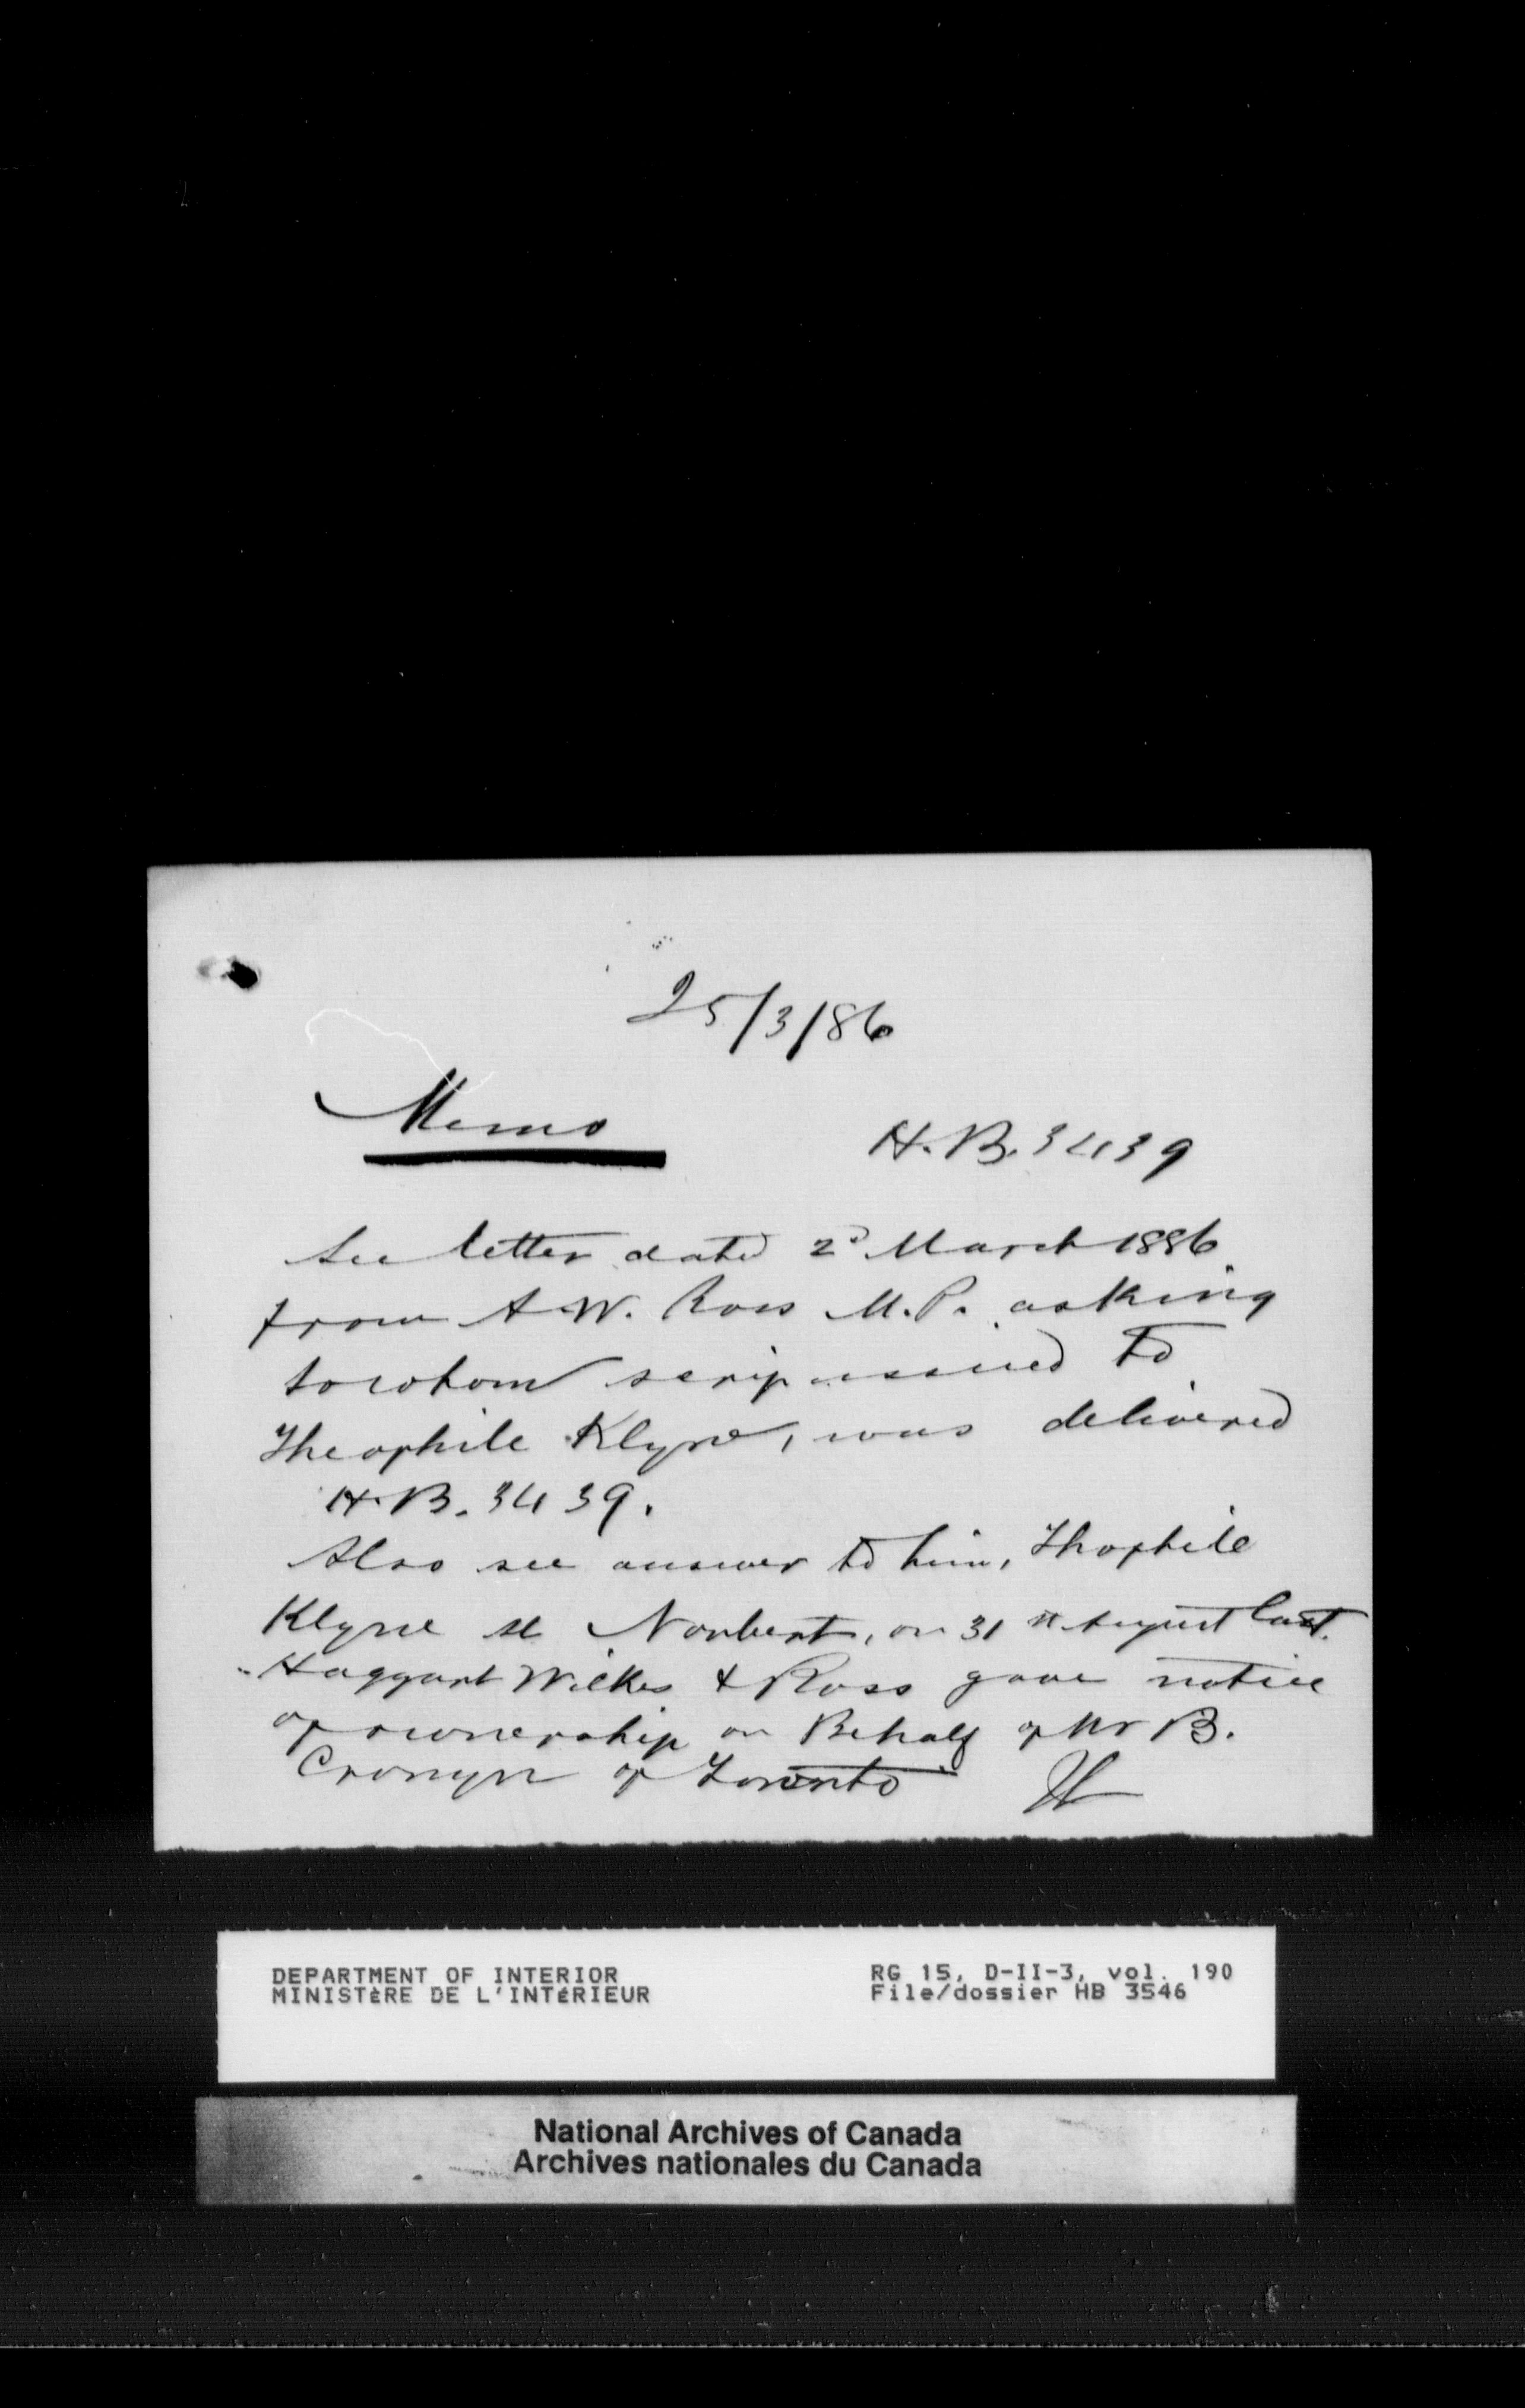 25/3/86
Memo
H.B. 3439
See letter dated 2d March 1886
from A. W. Ross M.P. asking
to whom scrip issued to
Theophile Klyne, was delivered
H.B. 3439.
Also see answer to him, Thophile
Klyne St Norbert, on 31st August last.
Haggart Wilkes & Ross gave notice
of ownership on Behalf of Mr B.
Cronyn of Toronto
DEPARTMENT OF INTERIOR
MINISTÈRE DE L'INTÉRIEUR
RG 15, D-II-3, vol. 190
File/dossier HB 3546
National Archives of Canada
Archives nationales du Canada